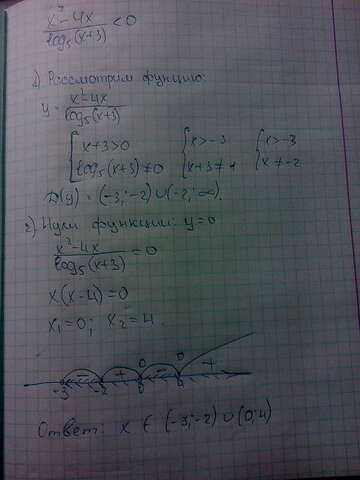 x² - 4x / log₅(x+3) < 0
1) Рассмотрим функцию:
y = x² - 4x / log₅(x+3)
{ x+3>0 { x>-3 { x>-3
log₅(x+3) ≠ 0 x+3 ≠ 1 x ≠ -2
D(y) = (-3; -2) ∪ (-2; ∞).
2) Нули функции: y=0
x² - 4x / log₅(x+3) = 0
x(x-4) = 0
x₁ = 0; x₂ = 4.
- + 0 - 0 +
-3 -2 0 4
Ответ: x ∈ (-3; -2) ∪ (0; 4)